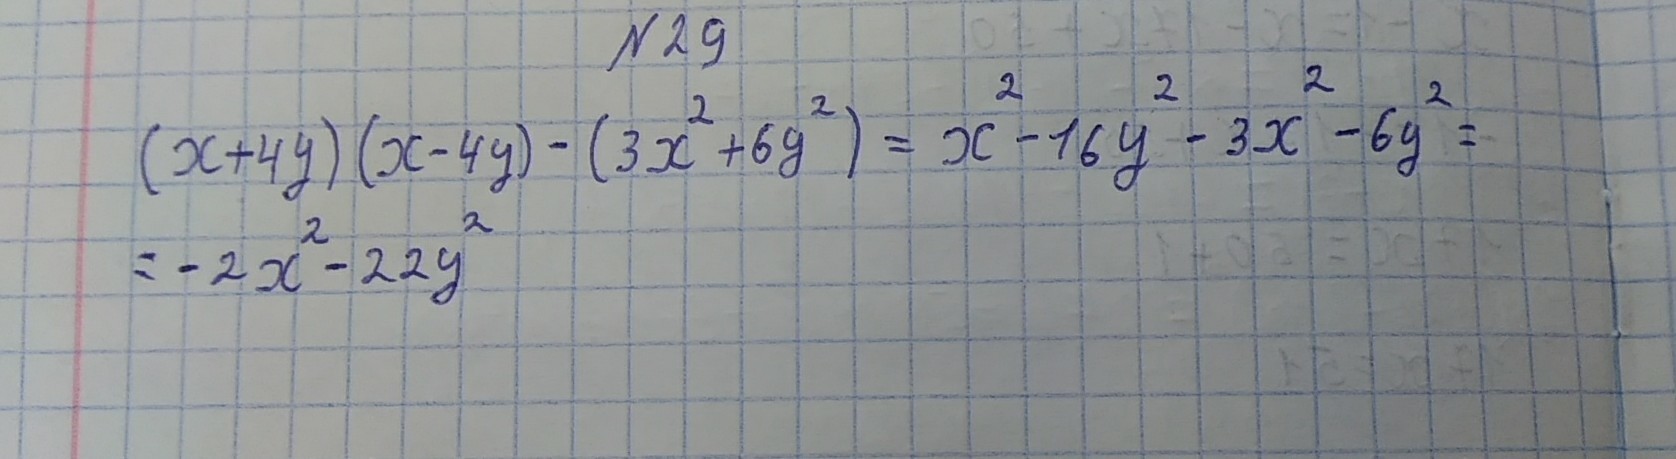 N29
(x+4y)(x-4y)-(3x²+6y²)=x²-16y²-3x²-6y²=
=-2x²-22y²